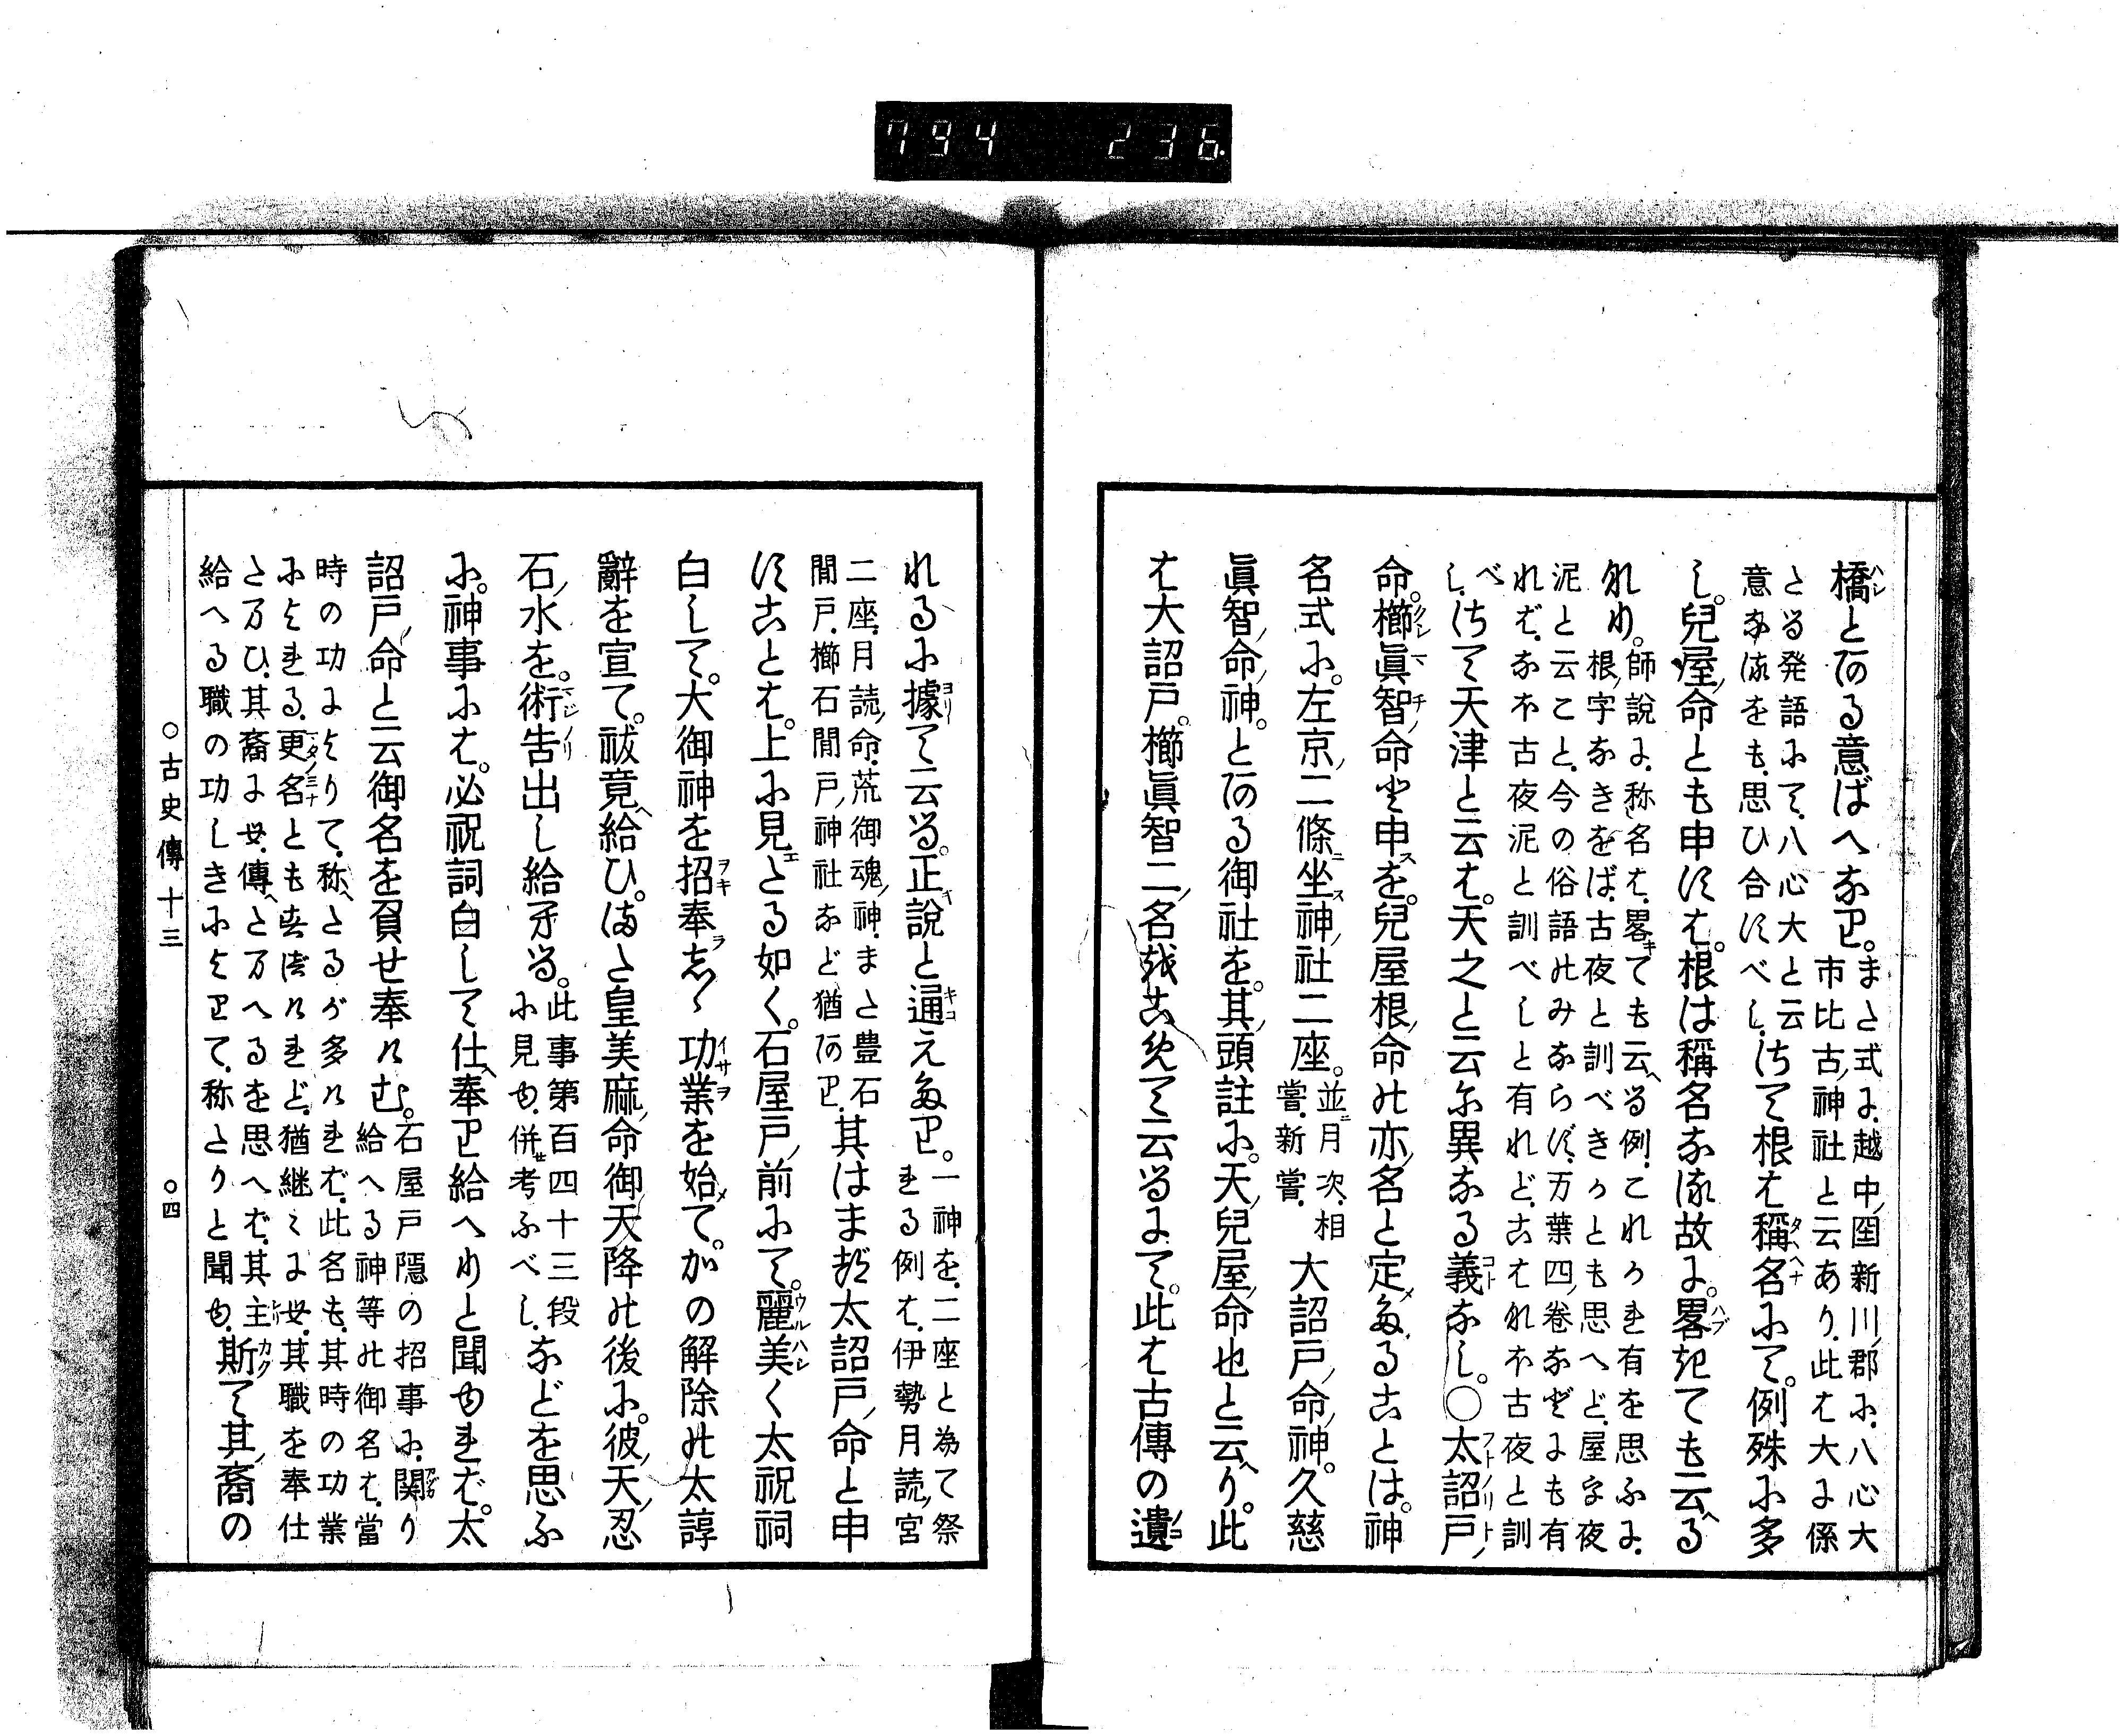 794 236.
橋とある意ばへなり。また式に、越中国新川郡に、八心大
市比古神社と云あり、此は大に係
たる発語にて、八心大と云
意なるをも、思ひ合すべし、さて根は稱名にて。例殊に多
し。兒屋命とも申すは。根は稱名なる故に。畧きても云へる
なれり。師説に、称名は、畧きても云へる例、これかれ有を思ふに、
根字なきをば、古夜と訓べきかとも思へど、屋字夜
泥と云こと、今の俗語のみならず、万葉四卷などにも有
れば、なほ古夜泥と訓べしと有れど、こはなほ古夜と訓
べし、さて天津と云は。天之と云に異なる義なし。○太詔戸
命。櫛眞智命と申を。兒屋根命の亦名と定めたることは。神
名式に。左京二條坐神社二座。並月次、相
嘗、新嘗、大詔戸命神。久慈
眞智命神。とある御社を。其頭註に。天兒屋命也と云り。此
は大詔戸。櫛眞智二名をこめて云るにて。此は古傳の遺
れるに據て云る。正說と通えたり。一神を、二座と為て祭
れる例は、伊勢月読宮
二座、月読命、荒御魂神、また豊石
間戸、櫛石間戸神社など猶あり、其はまづ太詔戸命と申
すことは。上に見えたる如く。石屋戸前にて。麗美く太祝詞
白して。大御神を招奉らしゝ功業を始めて。かの解除の太諄
辭を宣て。祓竟給ひ。また皇美麻命御天降の後に。彼天忍
石水を。術告出し給へる。此事第百四十三段
に見ゆ、併考ふべし、などを思ふ
に。神事には。必祝詞白して仕奉り給へりと聞ゆれば。太
詔戸命と云御名を負せ奉けむ。石屋戸隠の招事に、関り
給へる神等の御名は、當
時の功によりて、称へたるが多ければ、此名も、其時の功業
によれる、更名とも云べけれど、猶継々に世、其職を奉仕
たまひ、其裔に世、傳へたまへるを思へば、其主
給へる職の功しきによりて、称たりと聞ゆ、斯て其裔の
○古史傳十三 ○四